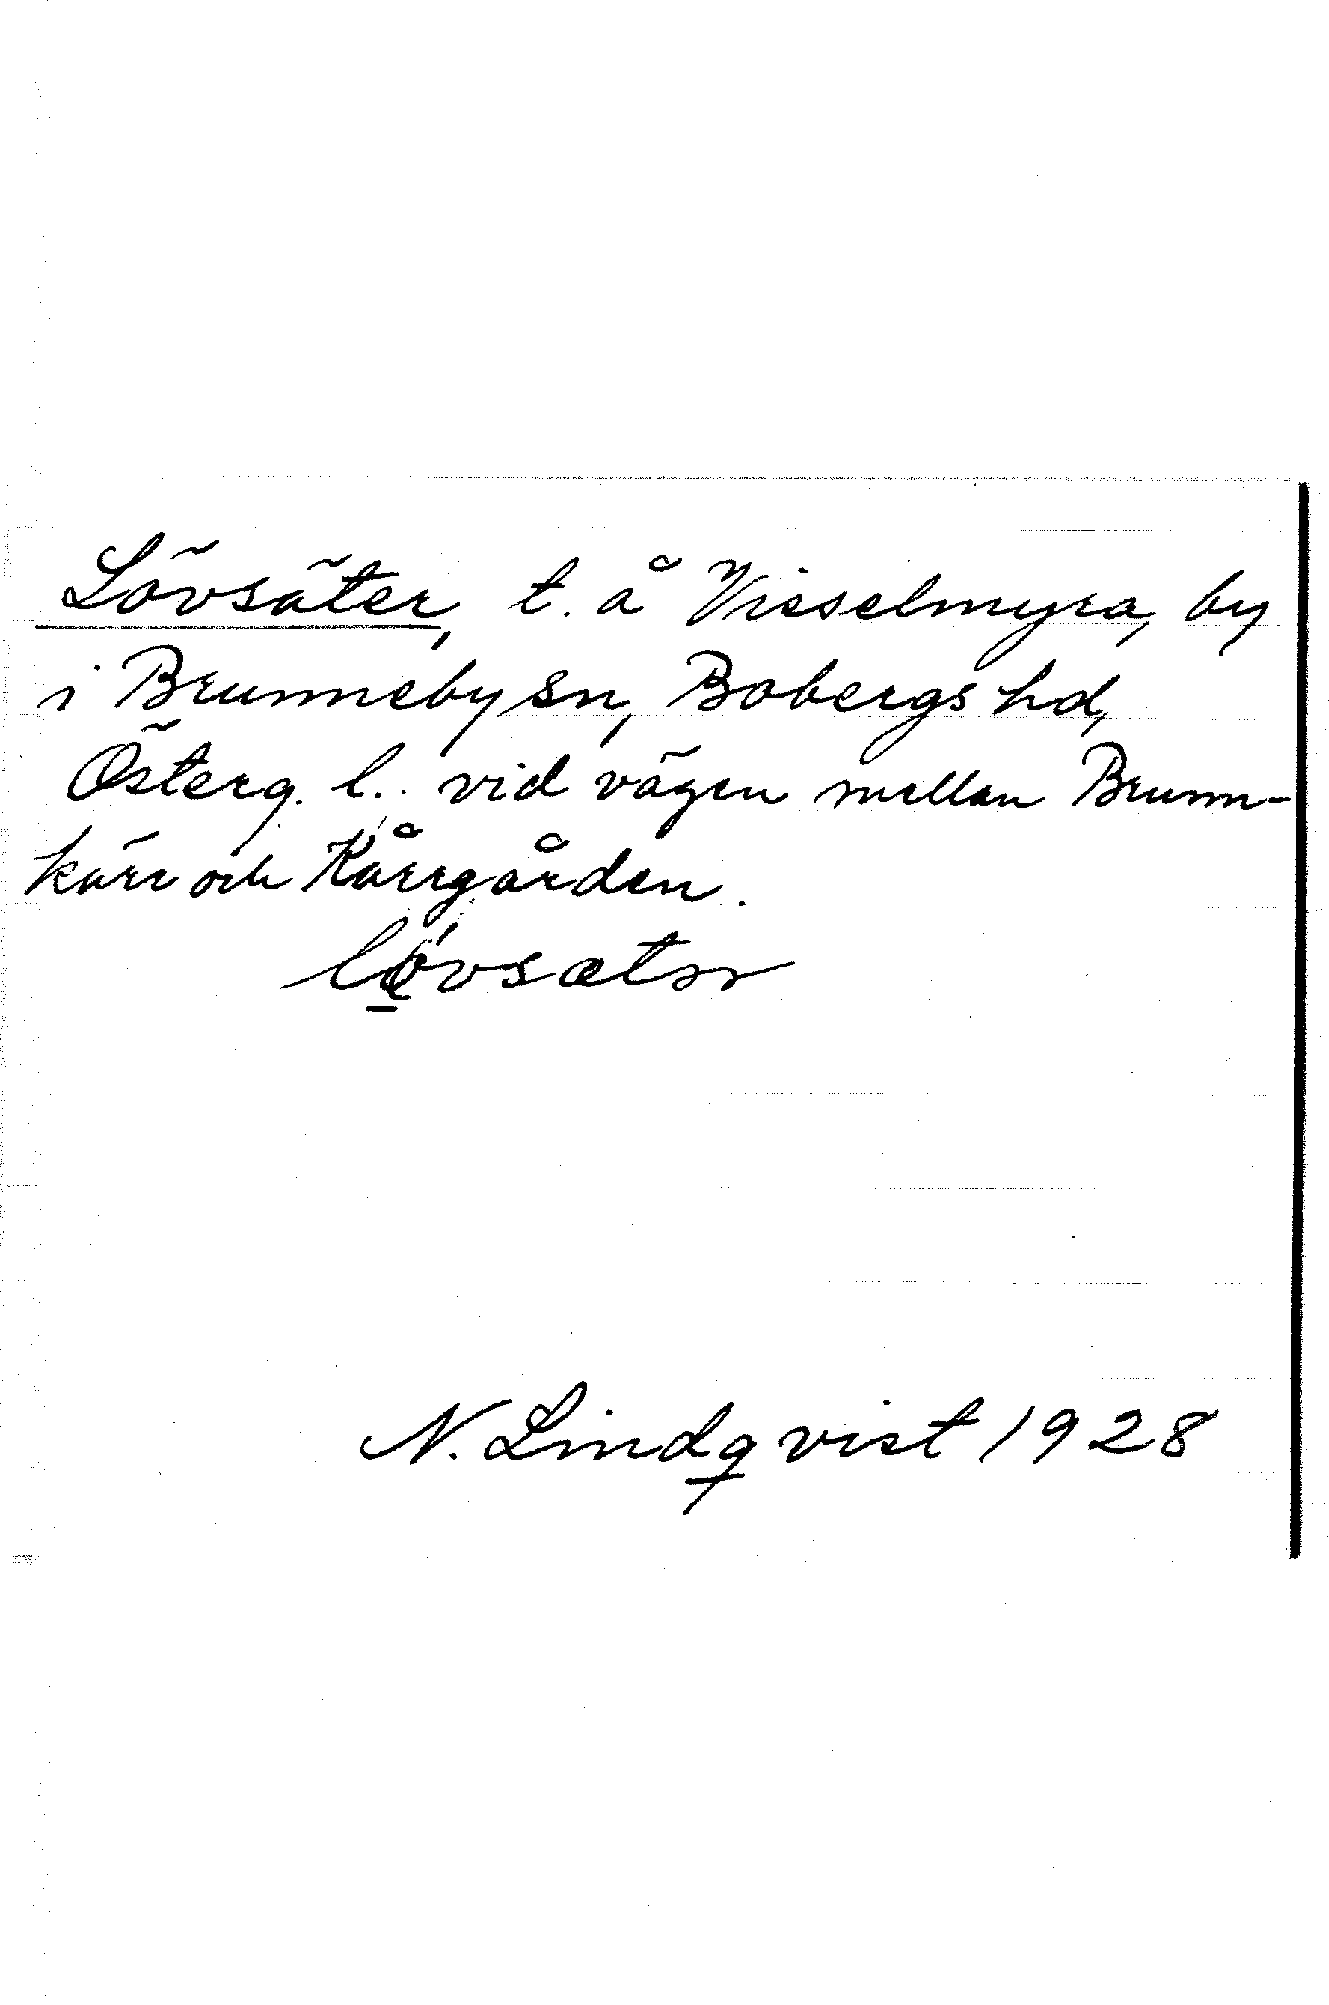 Lövsäter, t. å Visselmyra, by
i Brunneby sn, Bobergs hd,
Österg. l. vid vägen mellan Brunn-
kärr och Kårrgården.
N. Lindqvist 1928